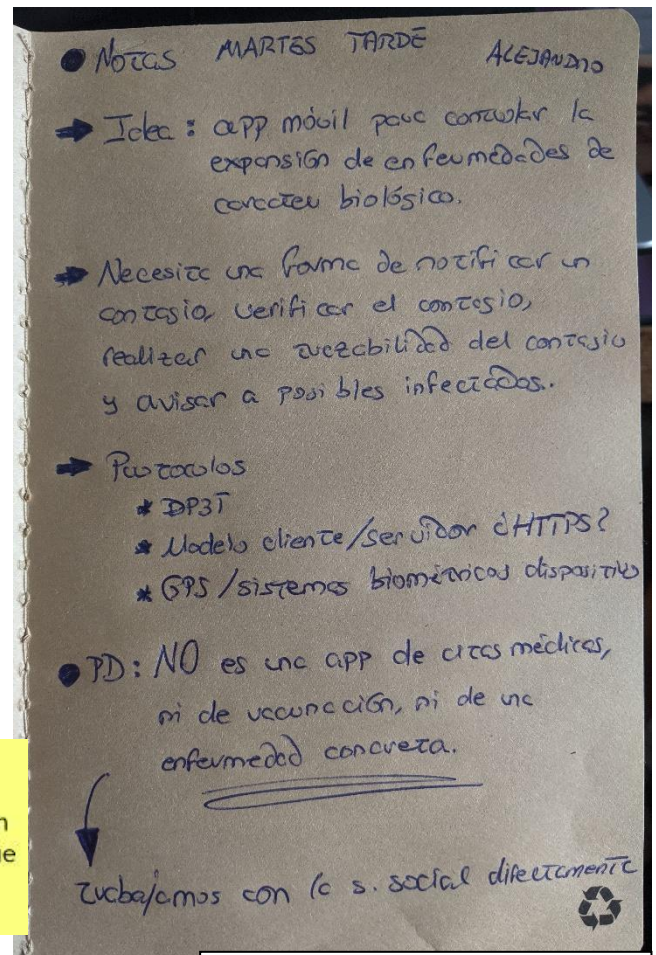 ● Notas MARTES TARDE ALEJANDRO
➡ Idea: app móvil para controlar la
expansión de enfermedades de
caracter biológico.
➡ Necesita una forma de notificar un
contagio, verificar el contagio,
realizar una trazabilidad del contagio
y avisar a posibles infectados.
➡ Protocolos
* DP3T
* Modelo cliente/servidor ¿HTTPS?
* GPS/sistemas biométricos dispositivo
● PD: NO es una app de citas médicas,
ni de vacunación, ni de una
enfermedad concreta.
trabajamos con la s. social directamente